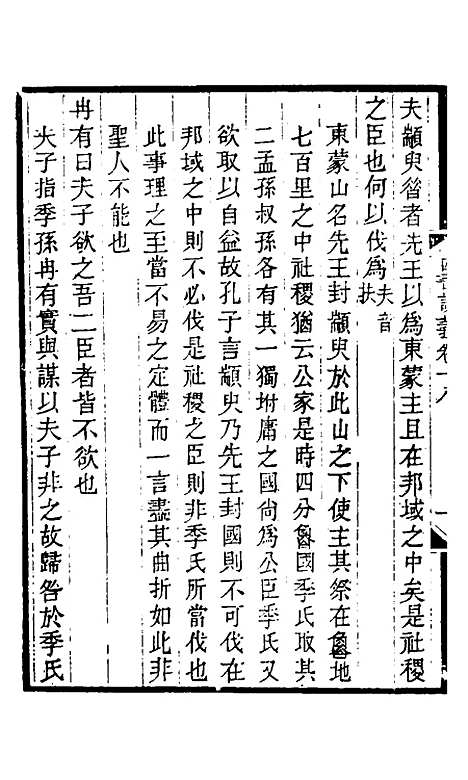 夫顓臾昝者先王以爲東蒙主且在邦域之中矣是社稷
之臣也何以伐爲夫音扶
東蒙山名先王封顓臾於此山之下使主其祭在魯地
七百里之中社稷猶云公家是時四分魯國季氏取其
二孟孫叔孫各有其一獨附庸之國尙爲公臣季氏又
欲取以自益故孔子言顓臾乃先王封國則不可伐在
邦域之中則不必伐是社稷之臣則非季氏所當伐也
此事理之至當不易之定體而一言盡其曲折如此非
聖人不能也
冉有曰夫子欲之吾二臣者皆不欲也
夫子指季孫冉有實與謀以夫子非之故歸咎於季氏
卷十八
一